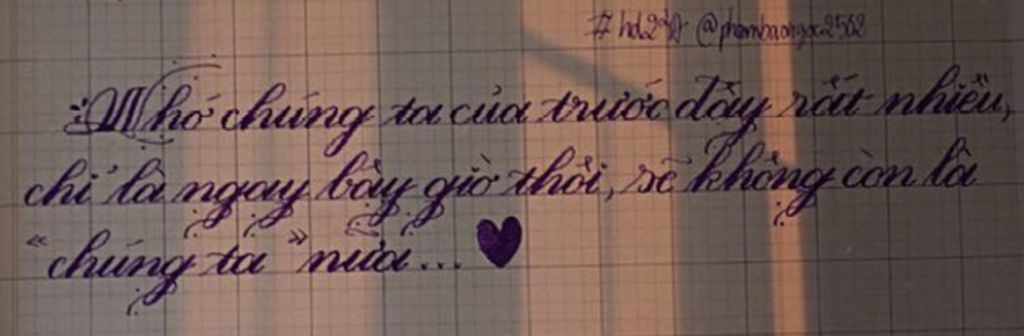 @phambaongoc2562
Nhớ chúng ta của trước đây rất nhiều,
chỉ là ngay bây giờ thôi, sẽ không còn là
"chúng ta" nữa... ♥